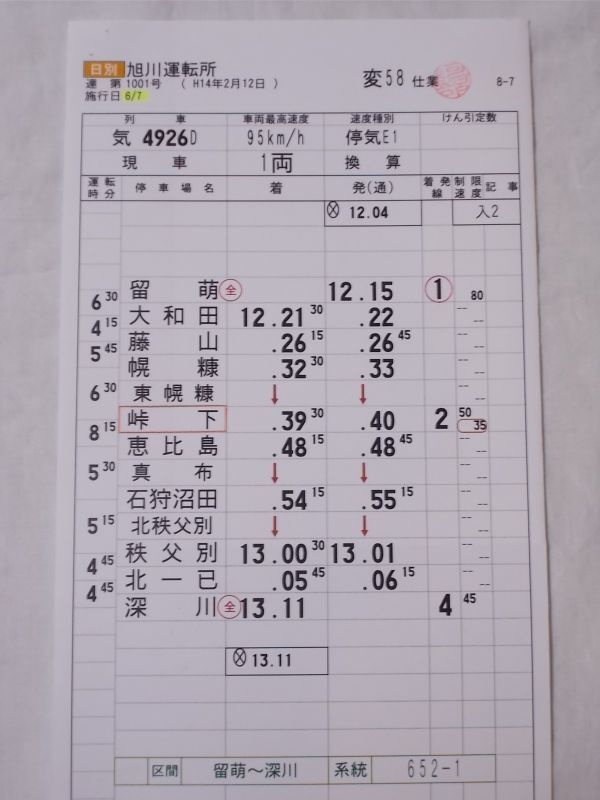 日別 旭川運転所 変58 仕業 8-7
達 第1001号 ( H14年2月12日 )
施行日 6/7
列 車 車両最高速度 速度種別 けん引定数
気 4926D 95km/h 停気E1
現 車 1両 換 算
運転時分 停車場名 着 発(通) 着発線 制限速度 記事
12.04 入2
留 萌 全 12.15 1 80
6 30
大 和 田 12.21 30 .22
4 15
藤 山 .26 15 .26 45
5 45
幌 糠 .32 30 .33
東 幌 糠 ↓ ↓
6 30
峠 下 .39 30 .40 2 50 35
8 15
恵 比 島 .48 15 .48 45
真 布 ↓ ↓
5 30
石狩沼田 .54 15 .55 15
北秩父別 ↓ ↓
5 15
秩 父 別 13.00 30 13.01
4 45
北 一 已 .05 45 .06 15
4 45
深 川 全 13.11 4 45
13.11
区間 留萌～深川 系統 652-1